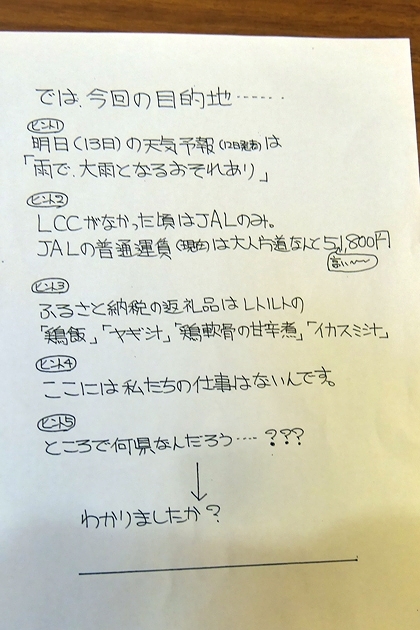 では、今回の目的地……
ヒント1
明日(13日)の天気予報(12日発表)は
「雨で、大雨となるおそれあり」
ヒント2
LCCがなかった頃はJALのみ。
JALの普通運賃(現在)は大人片道なんと51,800円
高い〜〜
ヒント3
ふるさと納税の返礼品はレトルトの
「鶏飯」「ヤギ汁」「鶏軟骨の甘辛煮」「イカスミ汁」
ヒント4
ここには私たちの仕事はないんです。
ヒント5
ところで何県なんだろう…. ???
わかりましたか?